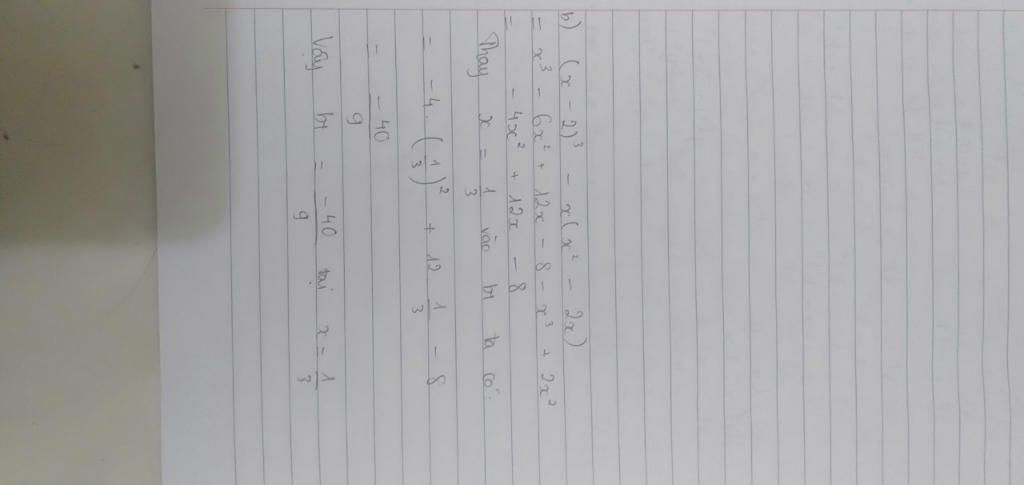 b) (x - 2)³ - x(x² - 2x)
= x³ - 6x² + 12x - 8 - x³ + 2x²
= - 4x² + 12x - 8
Thay x = 1/3 vào bt ta có:
= - 4. (1/3)² + 12 1/3 - 8
= -40/9
Vậy bt = -40/9 tại x = 1/3